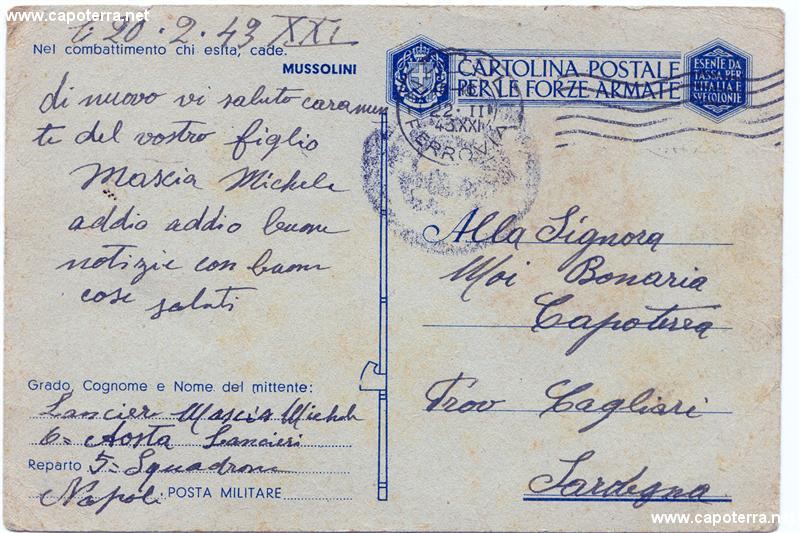 www.capoterra.net
li 20.2.43 XXI
Nel combattimento chi esita, cade.
MUSSOLINI
di nuovo vi saluto caramen
te del vostro figlio
Mascia Michele
addio addio buone
notizie con buon
cose saluti
Grado, Cognome e Nome del mittente:
Lancier Mascia Michele
6= Aosta Lancieri
Reparto 5= Squadrone
Napoli POSTA MILITARE
CARTOLINA POSTALE
PER LE FORZE ARMATE
ESENTE DA
TASSA PER
L'ITALIA E
SVE COLONIE
22-II
43.XXI
FERROVIA
Alla Signora
Moi Bonaria
Capoterra
Prov Cagliari
Sardegna
www.capoterra.net